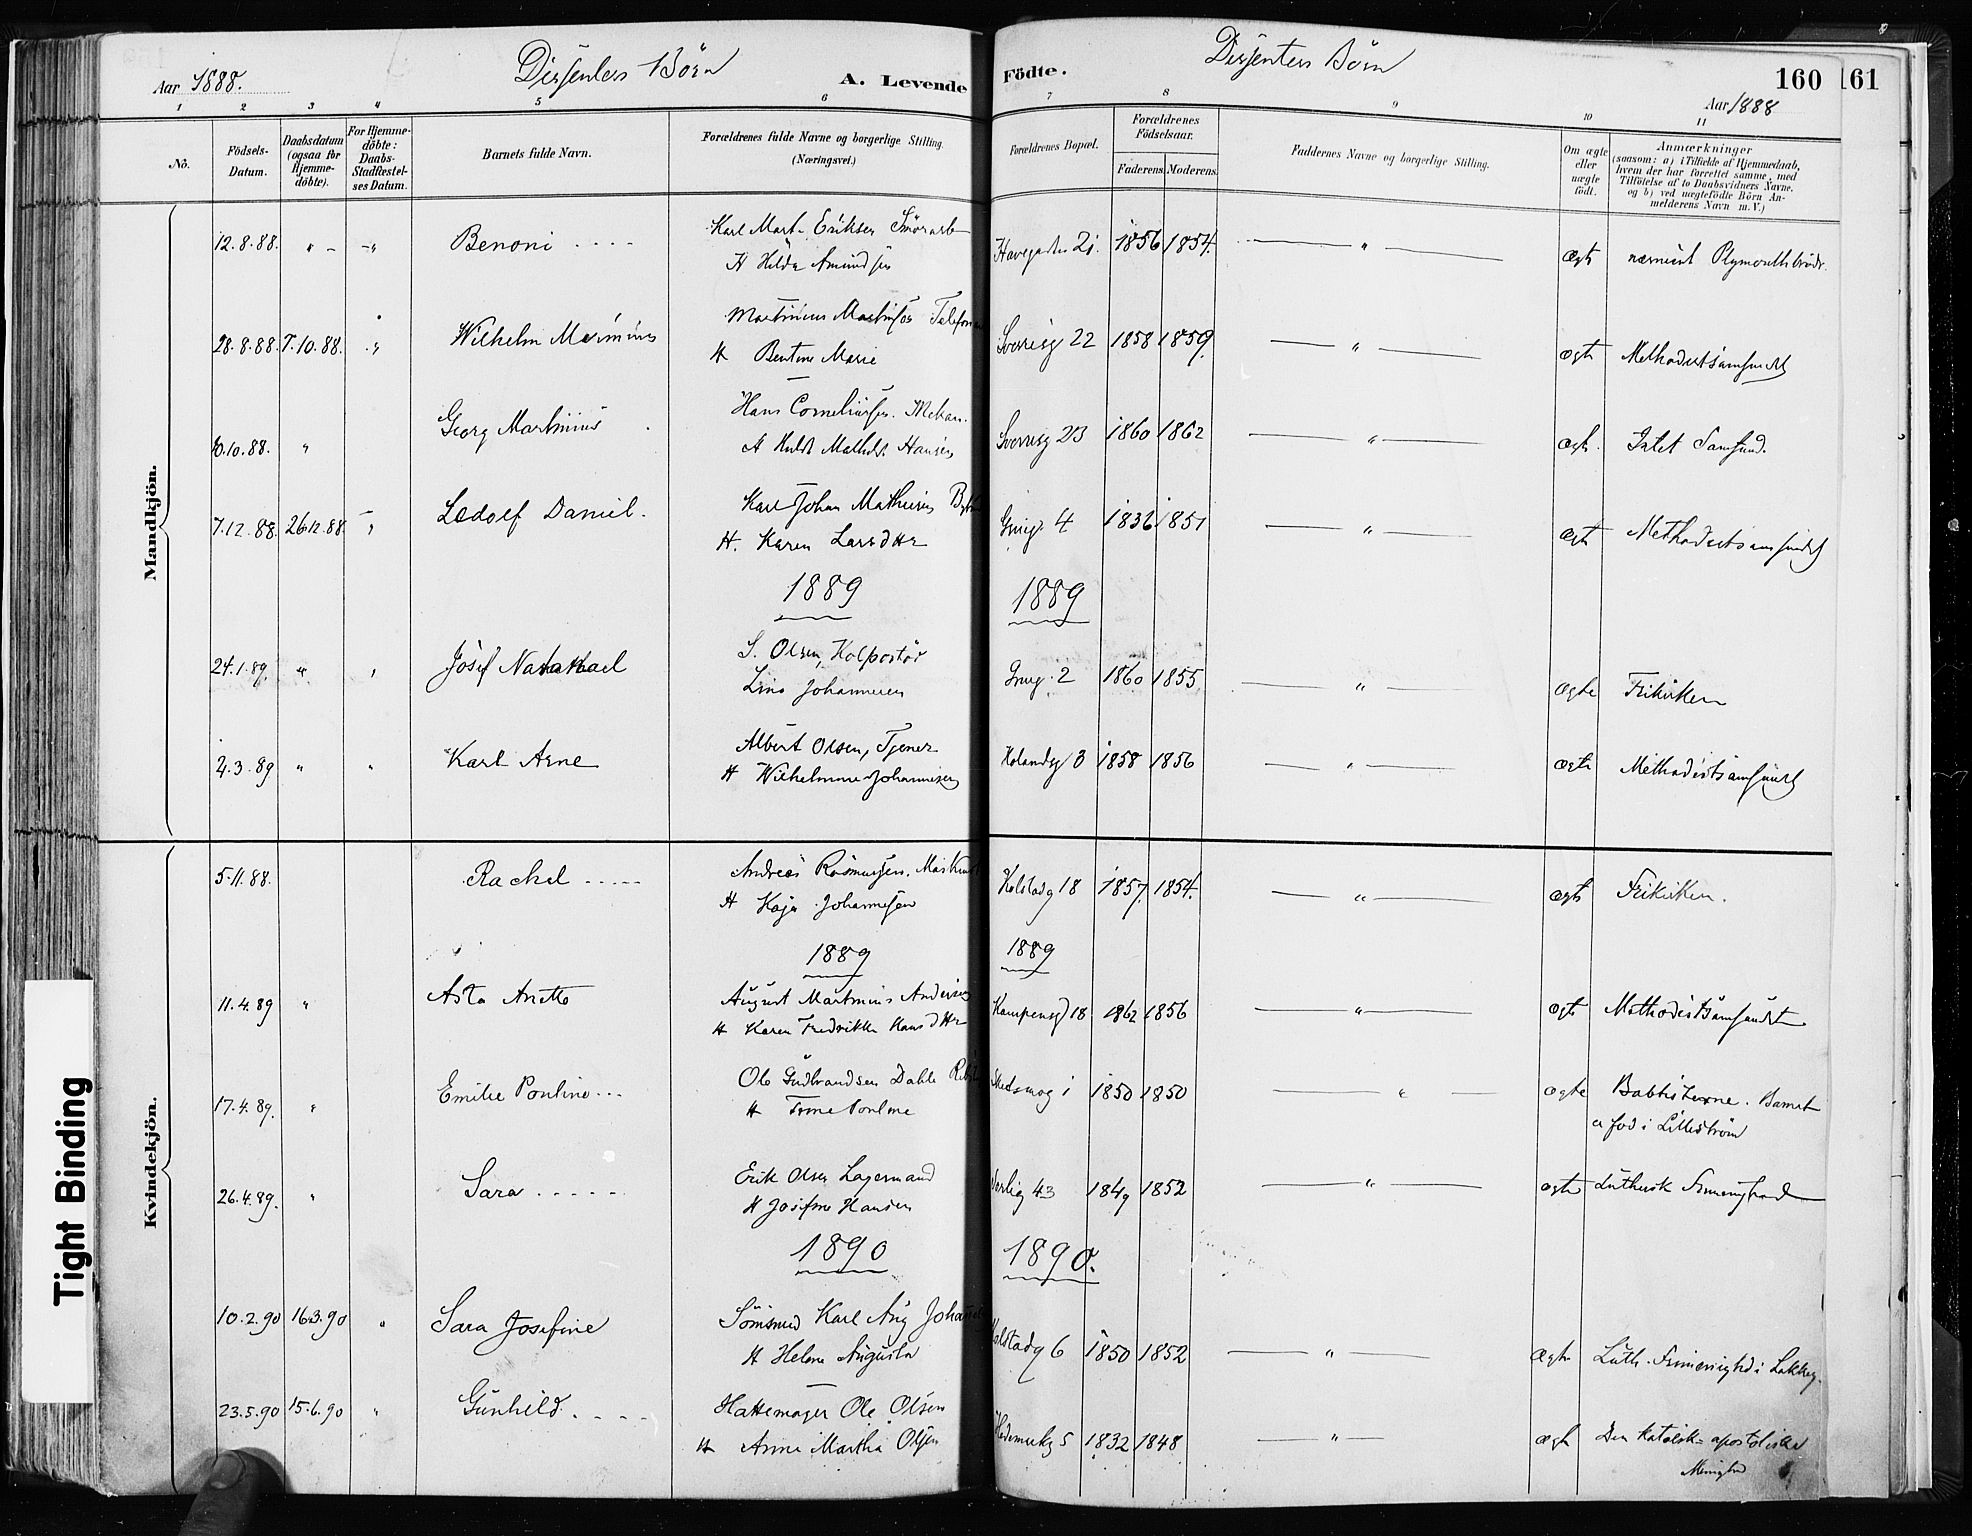 Dissenters Börn
Dissenters Börn
Aar 1888.
A. Levende
Födte.
160
161
Aar 1888
1 2 3 4 5 6 7 8 9 10 11
No.
Födsels-Datum.
Daabsdatum (ogsaa for Hjemme-döbte).
For Hjemme-döbte: Daabs-Stadfæstel-ses Datum.
Barnets fulde Navn.
Forældrenes fulde Navne og borgerlige Stilling. (Næringsvei.)
Forældrenes Bopæl.
Forældrenes Födselsaar.
Faderens.
Moderens.
Faddernes Navne og borgerlige Stilling.
Om ægte eller uægte födt.
Anmærkninger
(saasom: a) i Tilfælde af Hjemmedaab,
hvem der har forrettet samme, med
Tilföielse af to Daabsvidners Navne.
og b) ved uægtefödte Börn An-
melderens Navn m. V.)
Mandkjön.
12.8.88. " - - " Benoni .... Karl Mart. Eriksen 21. 1856 1854. " ægte Plymouthbrödr.
H Hilda Amundsen
28.8.88. 7.10.88. " Wilhelm Marinius Martinius Telefon Sverresg 22 1858 1859. " ægte Methodistsamfundet
H Bentine Marie
10.10.88. " Georg Martinius Hans Corneliussen. Mekan. Sverresg 23 1860 1862 " ægte. Intet Samfund.
H Huld Mathilde Hansen
7.12.88. 26.12.88. " Ledolf Daniel. Karl Johan Mathisen Grüng. 4 1836 1851 " ægte Methodistsamfundet
H. Karen Larsdtr
1889
1889
24.1.89. " " Josef Natanael S. Olsen, Kolportör Grüng. 2 1860 1855 " ægte Frikirken
Lina Johannesen
2.3.89 " " Karl Arne Albert Olsen, Tjener Holandsg 3 1858 1856 " ægte Methodistsamfundet
H Wilhelmine Johannesen
Kvindekjön.
5.11.88. Rachel ..... Andreas Rasmussen, Maskin Holstadg 18 1857. 1854. " ægte Frikirken.
H Kaja Johannesen
1889
1889
11.4.89 " Asta Anette August Martinius Andersen Kampensg 18 1862 1856 " ægte Methodistsamfundet
H Karen Fredrikke Hansdtr
17.4.89. " Emilie Pouline... Ole Gudbrandsen Dahle Skedsmog 1 1850 1850 " ægte Babtisterne. Barnet
H Trine Pouline er fød i Lilleström
26.4.89. " Sara ..... Erik Olsen Lagermand 43 1849 1852 " ægte Luthersk Frimenighed
H Josefine Hansen
1890
1890.
10.2.90 16.3.90 " Sara Josefine Karl Aug Johansen Holstadg 6 1850 1852 " ægte Luth. Frimenighed i Lakkeg.
H Helene Augusta
23.5.90 15.6.90 " Gunhild .... Hattemager Ole Olsen Hedemarkg 5 1832 1848 " ægte Den katolsk-apostoliske
H Anne Martha Olsen Menighed
Tight Binding